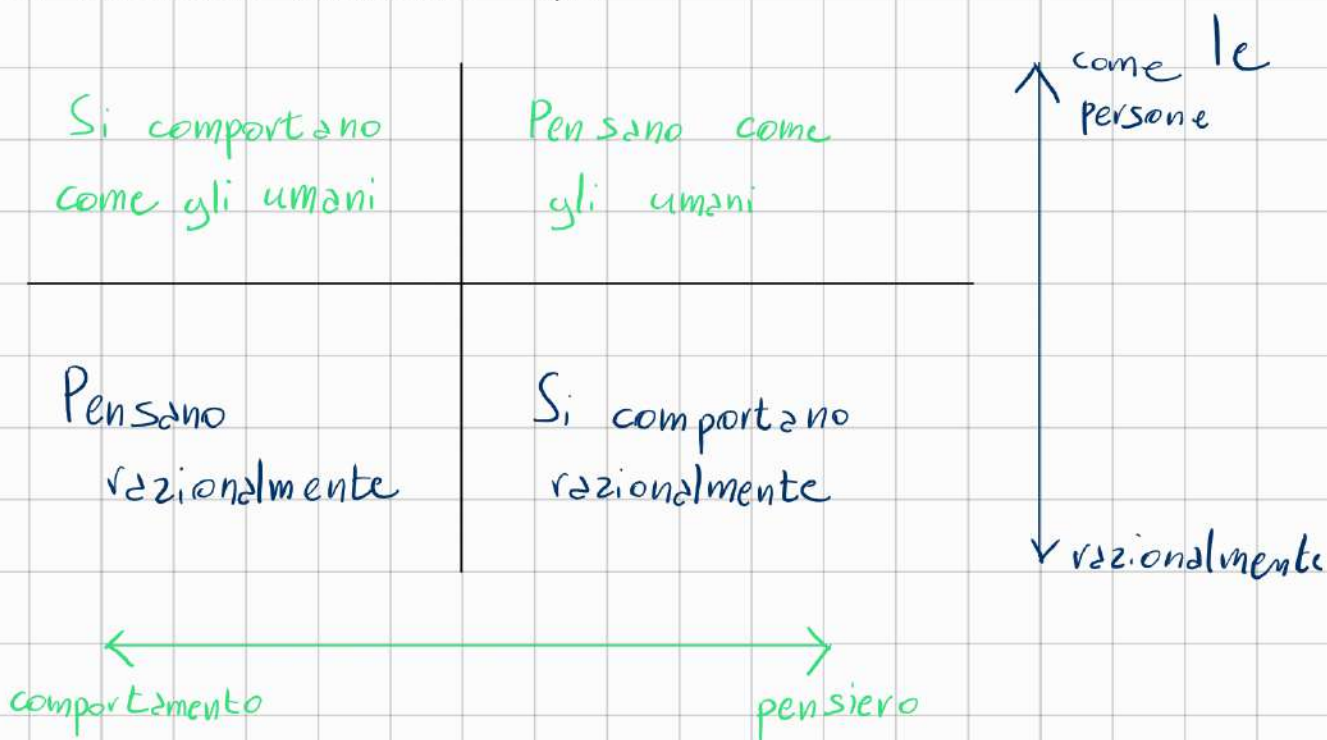 Si comportano
come gli umani
Pensano come
gli umani
come le
persone
Pensano
razionalmente
Si comportano
razionalmente
razionalmente
comportamento
pensiero